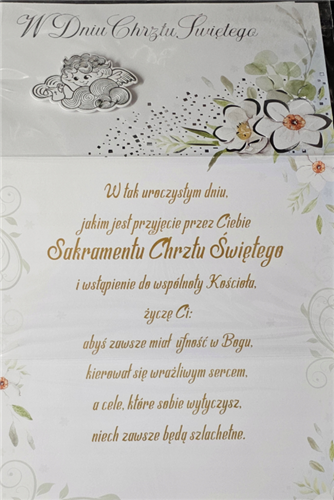 W Dniu Chrztu Świętego
W tak uroczystym dniu,
jakim jest przyjęcie przez Ciebie
Sakramentu Chrztu Świętego
i wstąpienie do wspólnoty Kościoła,
życzę Ci:
abyś zawsze miał ufność w Bogu,
kierował się wrażliwym sercem,
a cele, które sobie wytyczysz,
niech zawsze będą szlachetne.